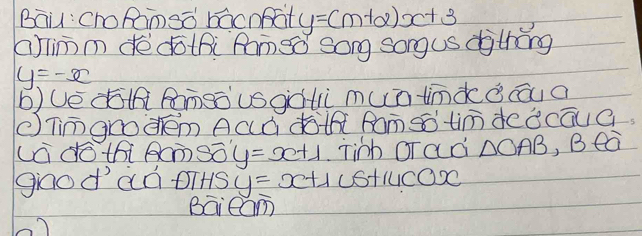 Bài 4: Cho hàm số bậc nhất y=(m+2)x+3
a) Tìm m để đồ thị hàm số song song vs đg thẳng
y=-x
b) Vẽ đồ thị hàm số vs giá trị m vừa tìm đc ở câu a
c) Tìm giao điểm A của đồ thị hàm số tìm đc ở câu a
và đồ thị hàm số y=x+1. Tính DT của ΔOAB, B là
giao đ' của ĐTHS y=x+1 vs trục Ox
Bài làm
a)